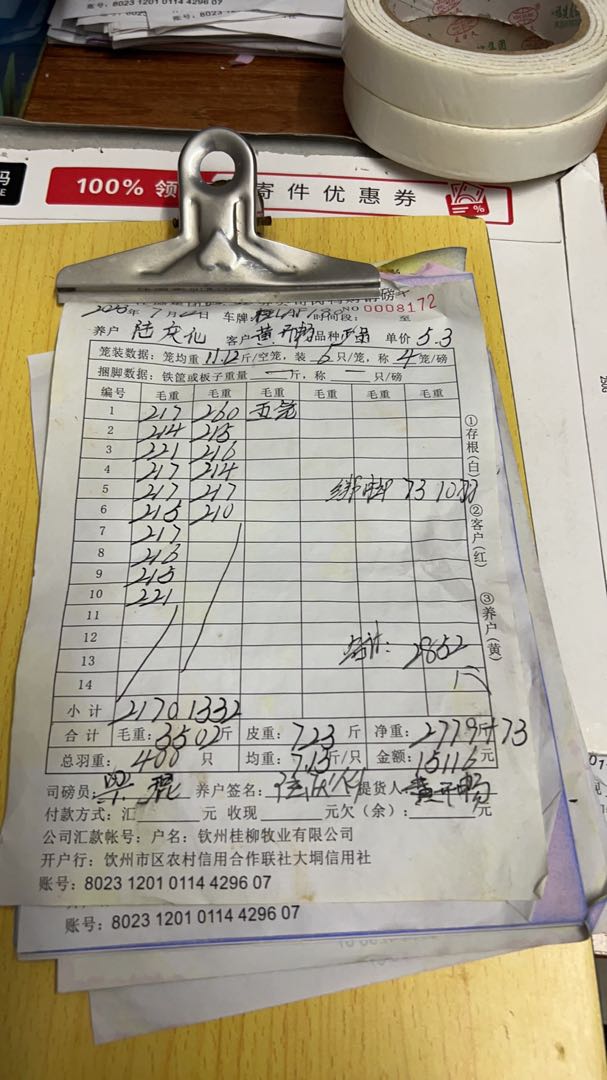 账号: 8023 1201 0114 4296 07
100% 领
寄件优惠券
NO 0008172
年 7月22日 车牌: 时间段: 至
养户 陆庆礼 客户 黄开畅 品种 单价 5.3
笼装数据: 笼均重 11.12 斤/空笼, 装 6 只/笼, 称 4 笼/磅
捆脚数据: 铁筐或板子重量 — 斤, 称 — 只/磅
编号 毛重 毛重 毛重 毛重 毛重 毛重
1 217 260 五笼
2 214 215
3 221 216
4 217 214
5 217 217 绑脚 73 10羽
6 215 210
7 217
8 216
9 215
10 221
11
12
13 合计: 2852
14
小计 2170 1332
合计 毛重: 3502 斤 皮重: 723 斤 净重: 2779斤+73
总羽重: 400 只 均重: 7.13 斤/只 金额: 15116 元
司磅员: 养户签名: 提货人 黄开畅
付款方式: 汇 元 收现 元欠(余): 元
公司汇款帐号: 户名: 钦州桂柳牧业有限公司
开户行: 钦州市区农村信用合作联社大垌信用社
账号: 8023 1201 0114 4296 07
①存根(白)
②客户(红)
③养户(黄)
账号: 8023 1201 0114 4296 07